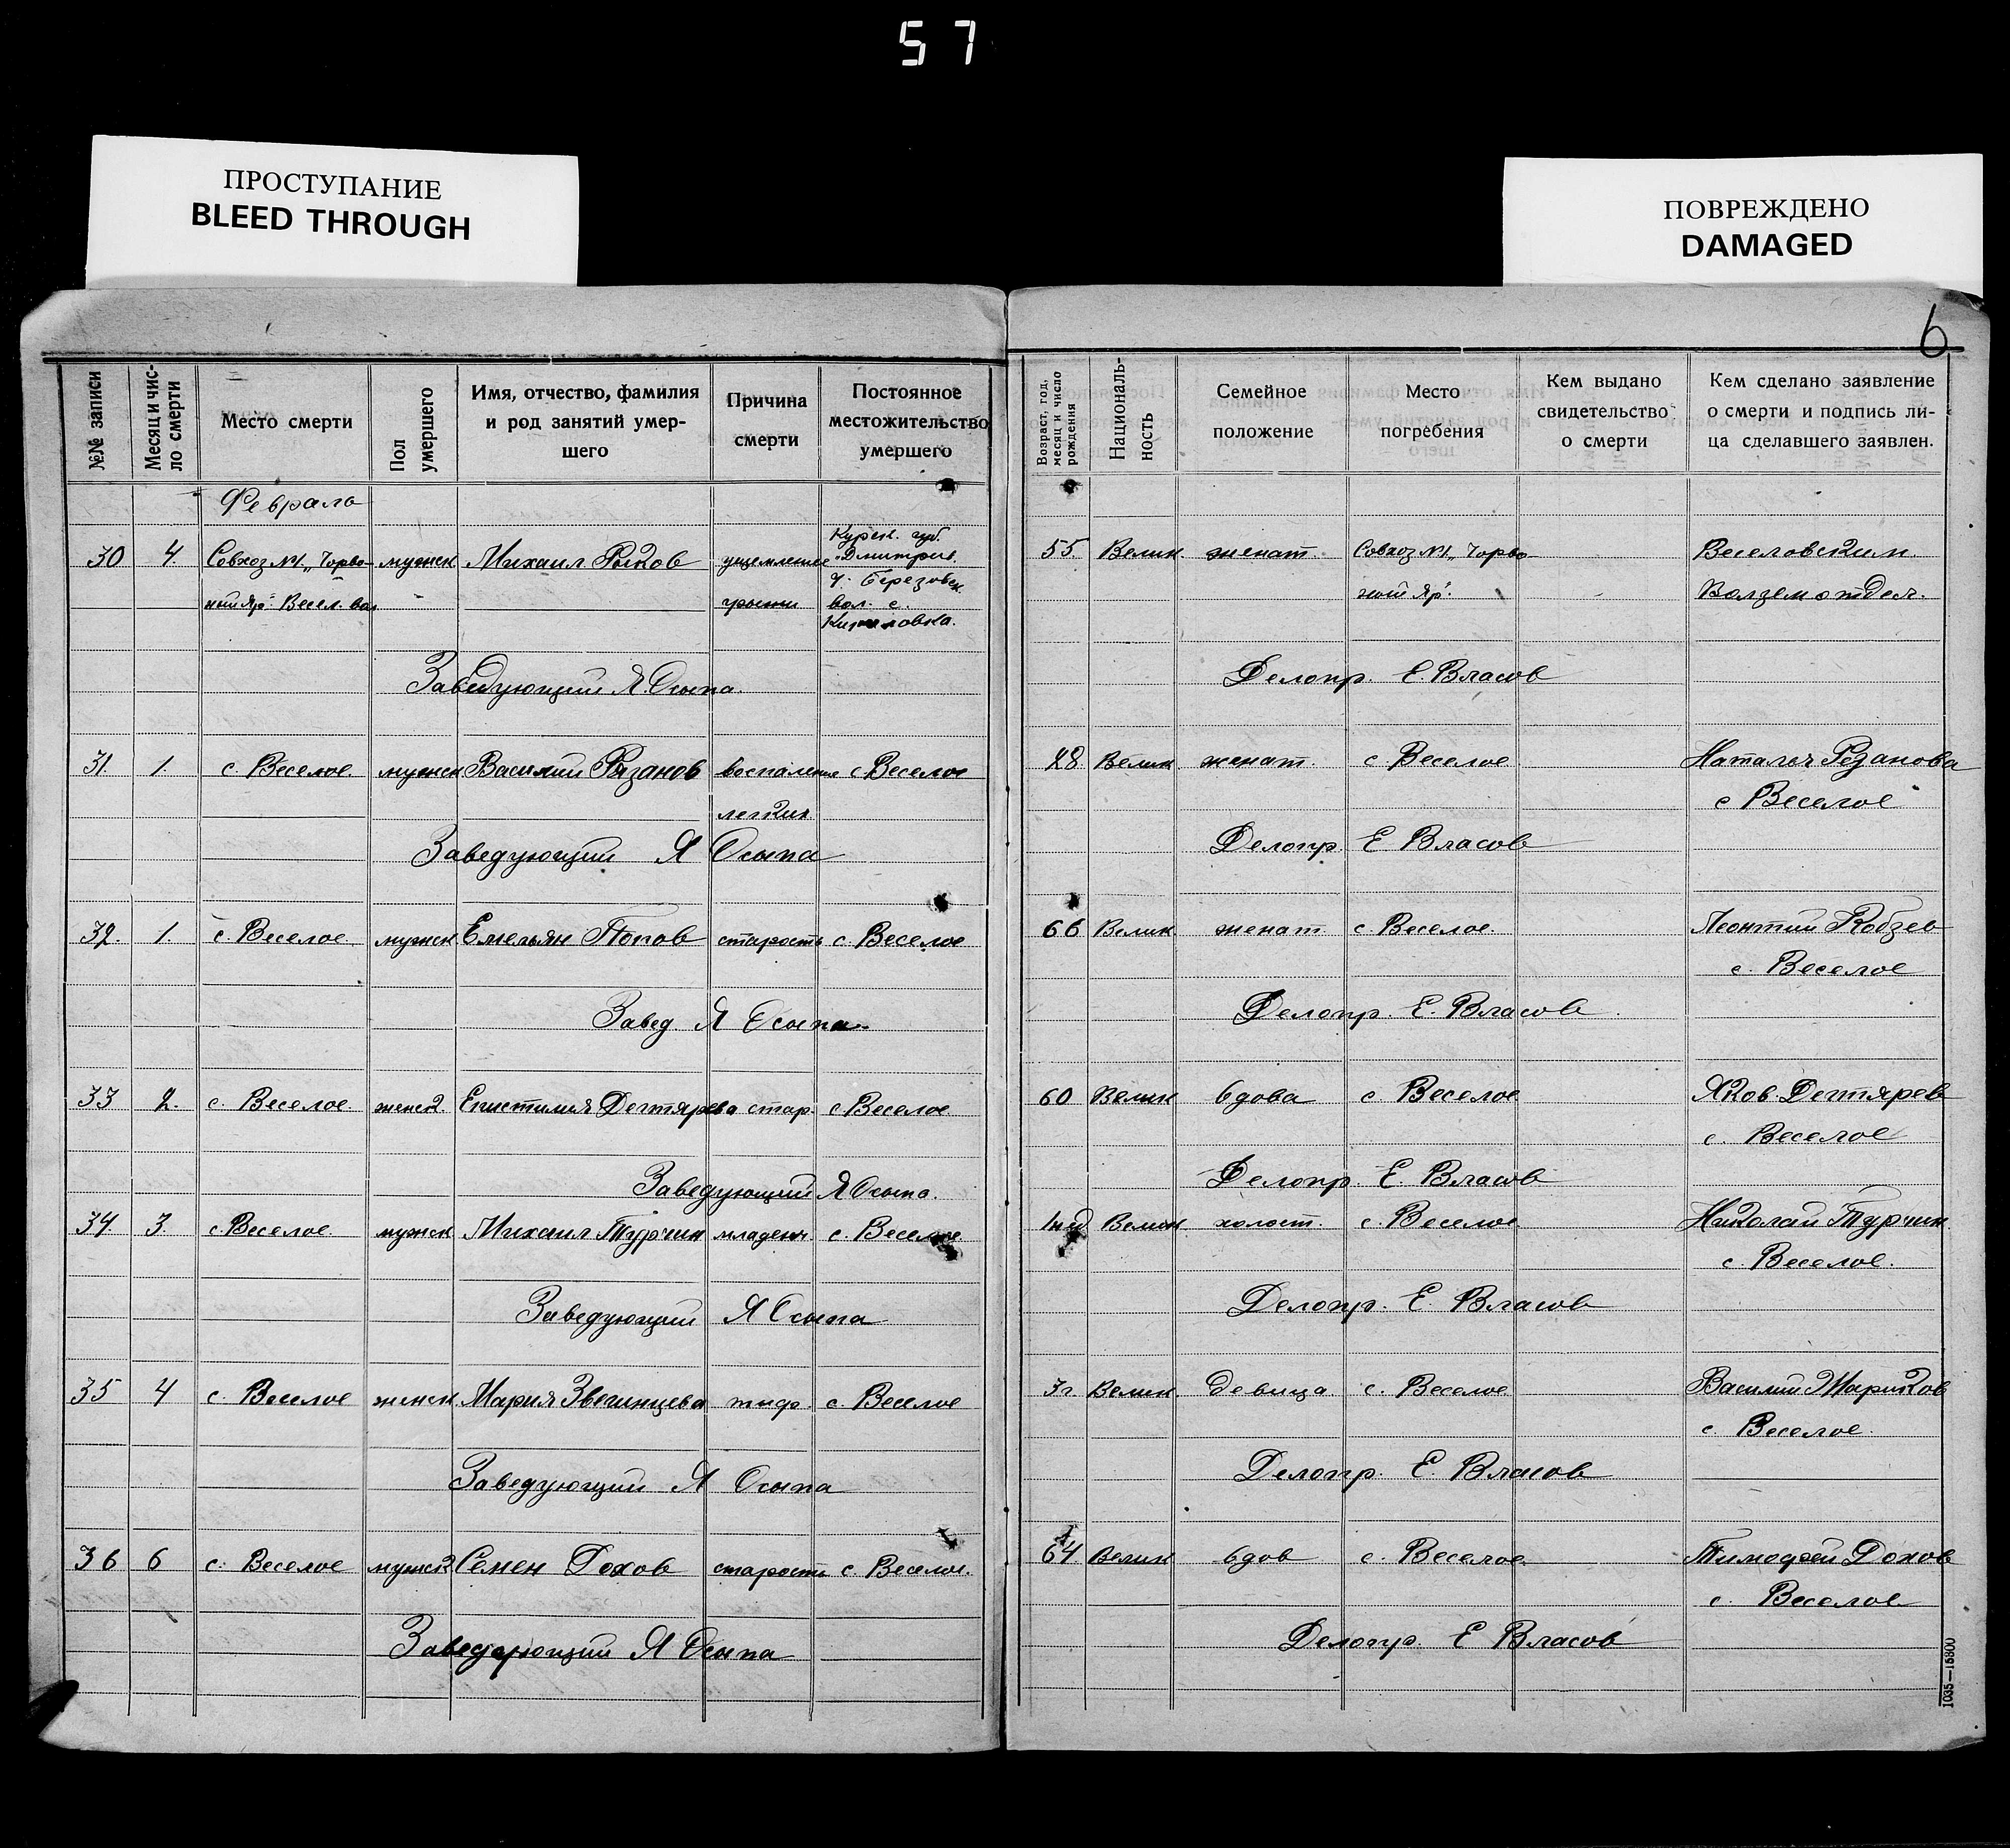 57
ПРОСТУПАНИЕ
BLEED THROUGH
ПОВРЕЖДЕНО
DAMAGED
6
№№ записи
Месяц и чис-
ло смерти
Место смерти
Пол
умершего
Имя, отчество, фамилия
и род занятий умер-
шего
Причина
смерти
Постоянное
местожительство
умершего
Возраст, год,
месяц и число
рождения
Националь-
ность
Семейное
положение
Место
погребения
Кем выдано
свидетельство
о смерти
Кем сделано заявление
о смерти и подпись ли-
ца сделавшего заявлен.
Февраль
30 4. Совхоз №1 „Черво- мужск Михаил Рыков ущемление Курск. губ. Дмитриев. 55. Велик. женат. Совхоз №1 „Черво- Веселовским
ный Яр" Весел. вол. грыжи у. Березовск. вол. с. ный Яр". Волземотдел.
Заведующий Я. Осыпа. Делопр. Е. Власов
31. 1. с. Веселое. мужск Василий Рязанов воспаление с Веселое 28. Велик. женат. с. Веселое Наталья Резанова
легких с Веселое
Заведующий Я Осыпа Делопр. Е Власов
32. 1. с Веселое. мужск Емельян Попов старость с. Веселое 66 Велик женат с. Веселое. Леонтий Кобзев
с. Веселое
Завед. Я Осыпа. Делопр. Е. Власов.
33 2. с. Веселое. женск. Дегтярева стар. с Веселое 60 Велик вдова с. Веселое Яков Дегтярев
с. Веселое
Заведующий Я Осыпа. Делопр. Е. Власов
34. 3. с. Веселое. мужск Михаил Турчин младен. с. Веселое Велик. холост. с. Веселое Николай Турчин
с. Веселое.
Заведующий Я Осыпа Делопр. Е. Власов
35 4 с. Веселое женск. Мария Звегинцева тиф. с. Веселое 3г. Велик. девица с. Веселое Василий
с. Веселое.
Заведующий Я Осыпа Делопр. Е. Власов
36 6 с. Веселое мужск Семен Дохов старость с. Веселое. 64 Велик вдов с. Веселое Тимофей Дохов
с. Веселое
Заведующий Я Осыпа Делопр. Е Власов
1035—15800